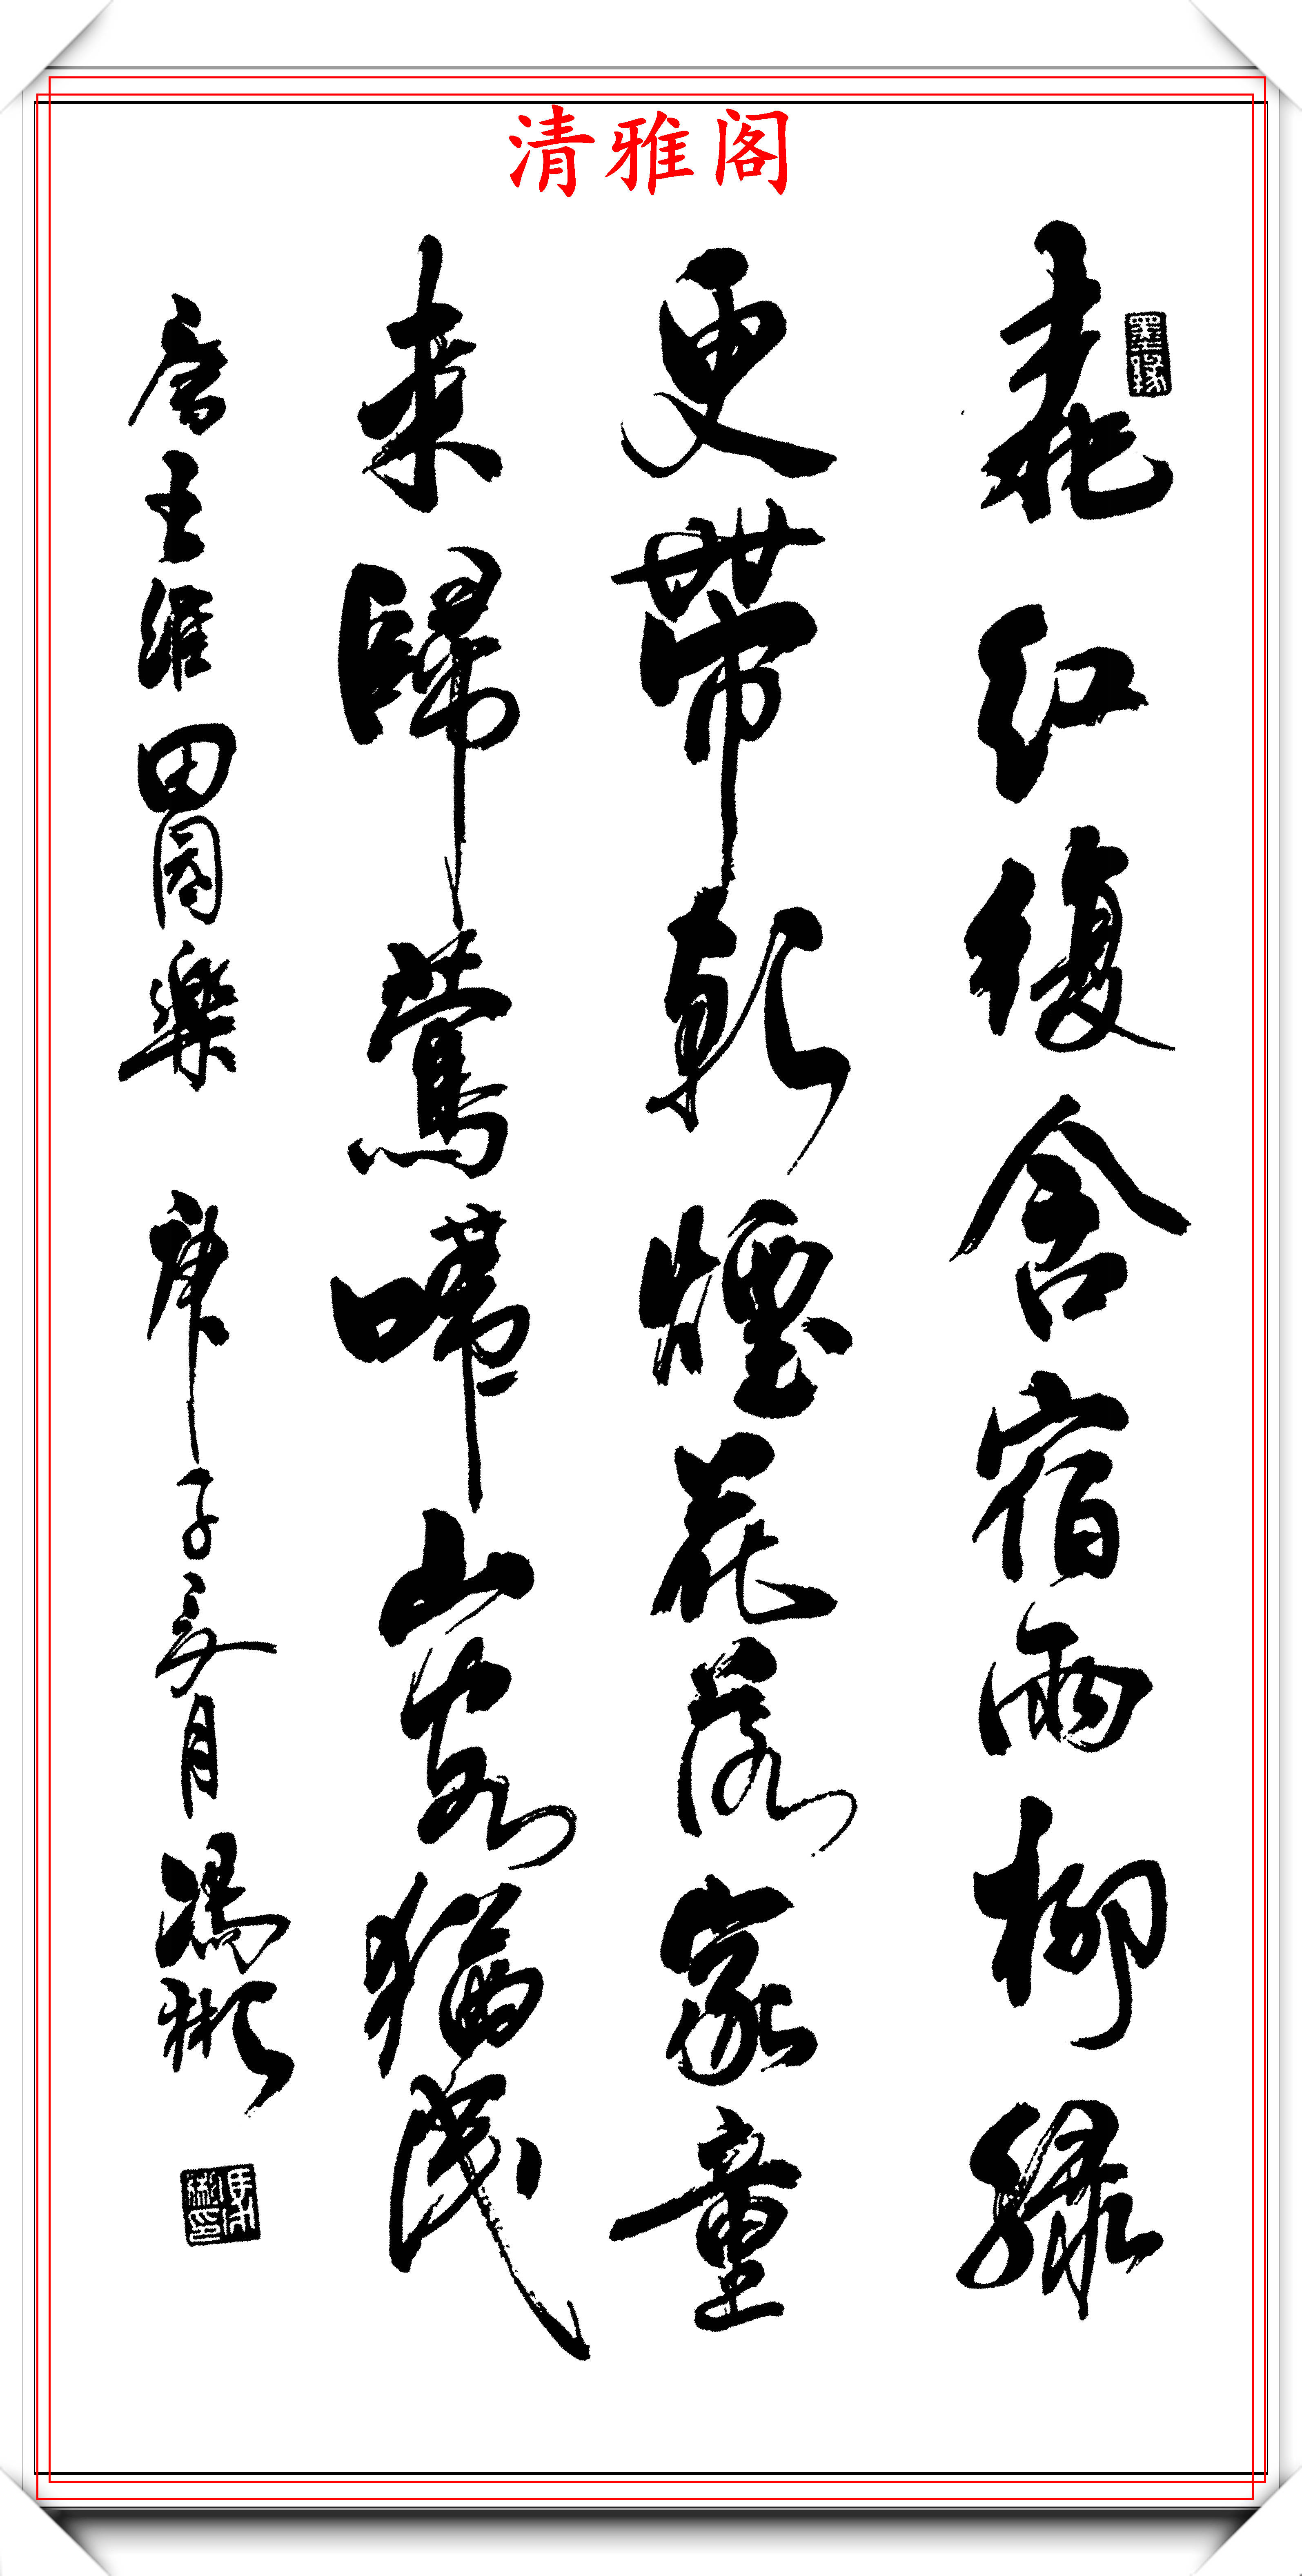 清雅阁
墨缘
桃红復含宿雨柳绿
更帶朝煙花落家童
来歸鶯啼山客猶眠
唐王維田園樂 庚子月馮彬